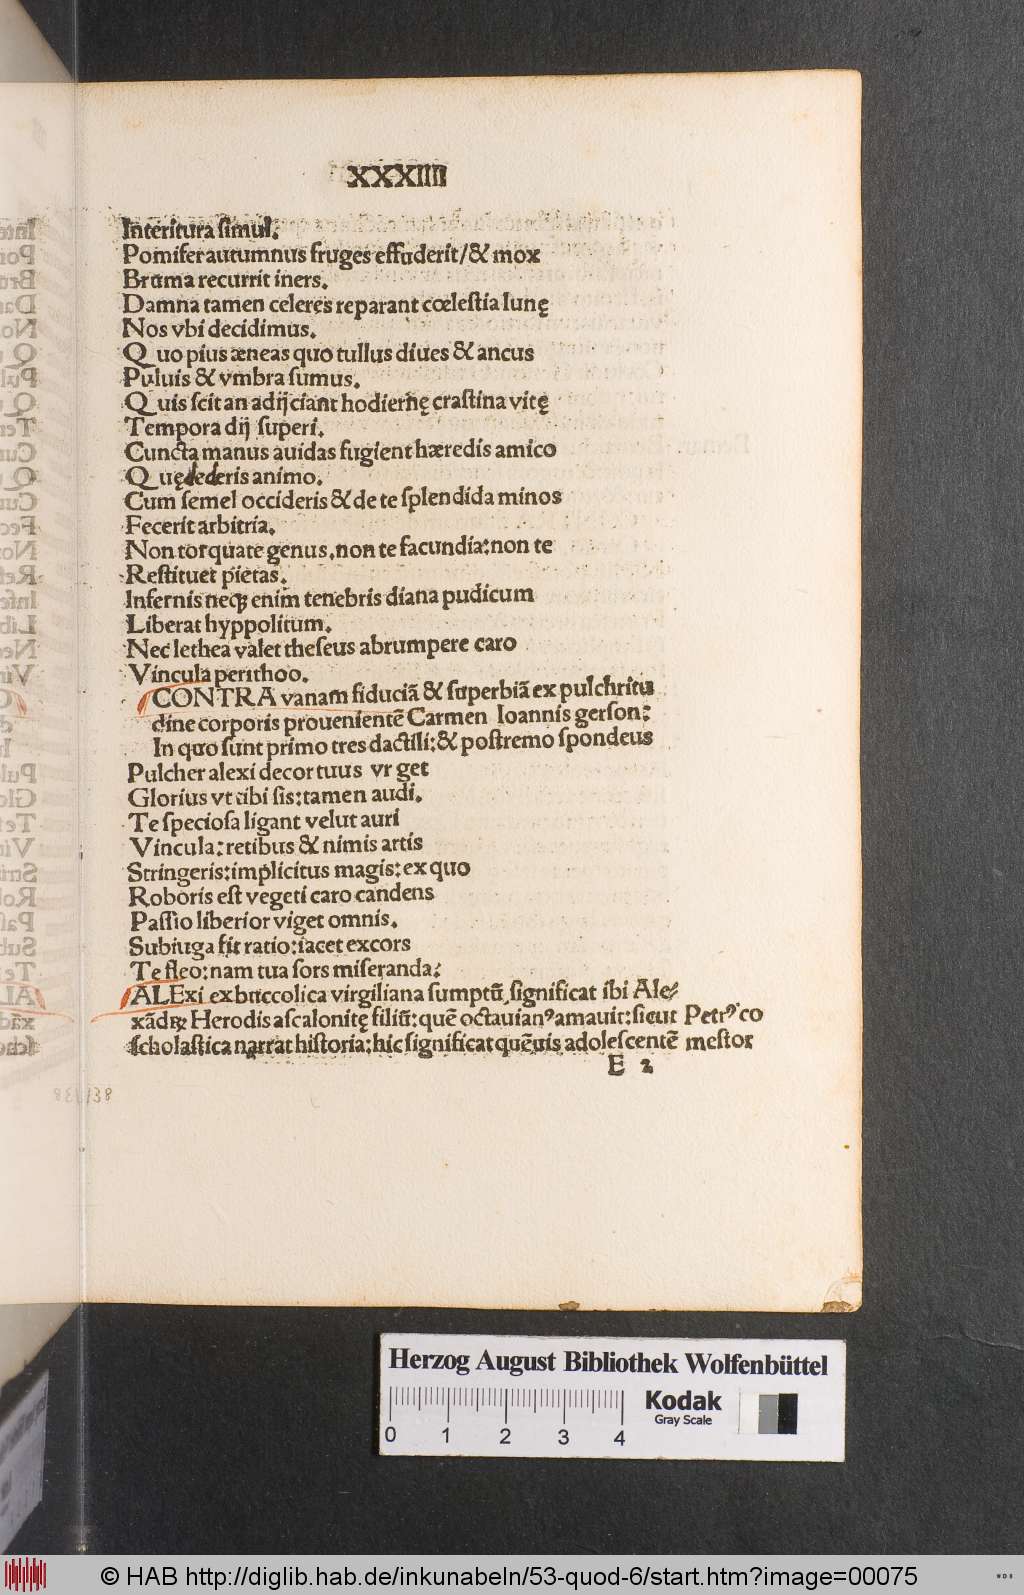 XXXIIII
Interitura ſimul.
Pomifer autumnus fruges effuderit/& mox
Bruma recurrit iners.
Damna tamen celeres reparant cœleſtia lunę
Nos vbi decidimus.
Quo pius æneas quo tullus diues & ancus
Puluis & vmbra ſumus.
Quis ſcit an adijciant hodiernę craſtina vitę
Tempora dij ſuperi.
Cuncta manus auidas fugient hæredis amico
Quę dederis animo.
Cum ſemel occideris & de te ſplendida minos
Fecerit arbitria.
Non torquate genus, non te facundia: non te
Reſtituet pietas.
Infernis neqꝫ enim tenebris diana pudicum
Liberat hyppolitum.
Nec lethea valet theſeus abrumpere caro
Vincula perithoo.
CONTRA vanam fiduciā & ſuperbiā ex pulchritu
dine corporis prouenientē Carmen Ioannis gerſon:
In quo ſunt primo tres dactili: & poſtremo ſpondeus
Pulcher alexi decor tuus vrget
Glorius vt tibi ſis: tamen audi.
Te ſpecioſa ligant velut auri
Vincula: retibus & nimis artis
Stringeris: implicitus magis: ex quo
Roboris eſt vegeti caro candens
Paſſio liberior viget omnis.
Subiuga fit ratio: iacet excors
Te fleo: nam tua ſors miſeranda:
ALExi ex buccolica virgiliana ſumptū, ſignificat ibi Ale⸗
xādꝝ Herodis aſcalonitę filiū: quē octauianꝰ amauit: ſicut Petrꝰ co
ſcholaſtica narrat hiſtoria: hic ſignificat quēuis adoleſcentē meſtor
E 2
Herzog August Bibliothek Wolfenbüttel
Kodak
Gray Scale
0 1 2 3 4
© HAB http://diglib.hab.de/inkunabeln/53-quod-6/start.htm?image=00075